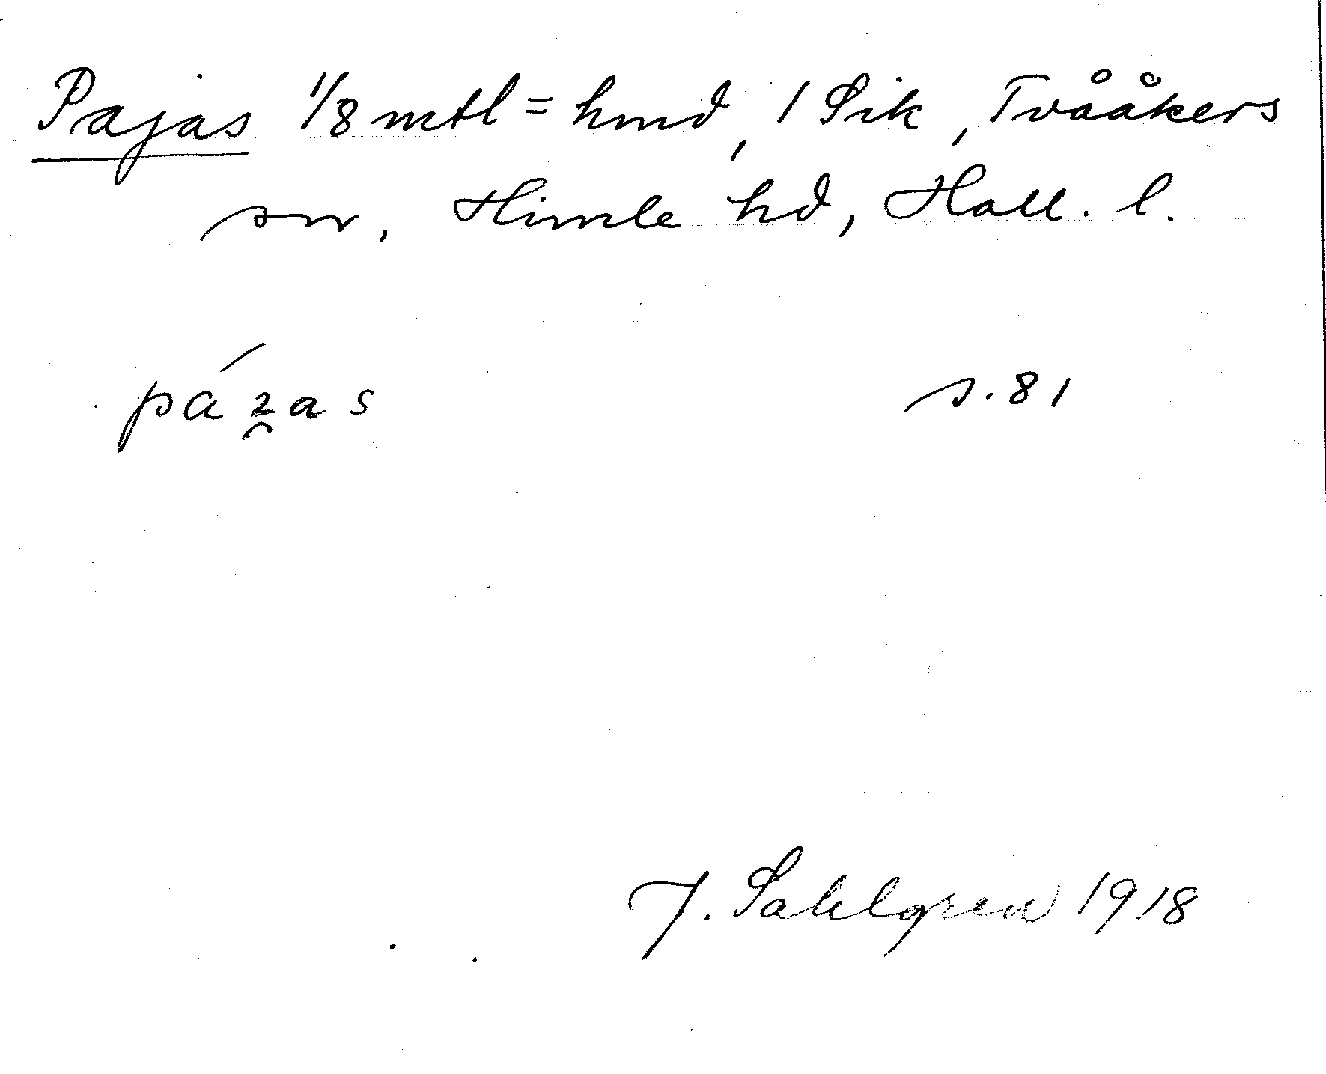 Pajas 1/8 mtl = hmd, 1 Sik, Tvååkers
sn, Himle hd, Hall. l.
pá2̯as s. 81
J. Sahlgren 1918